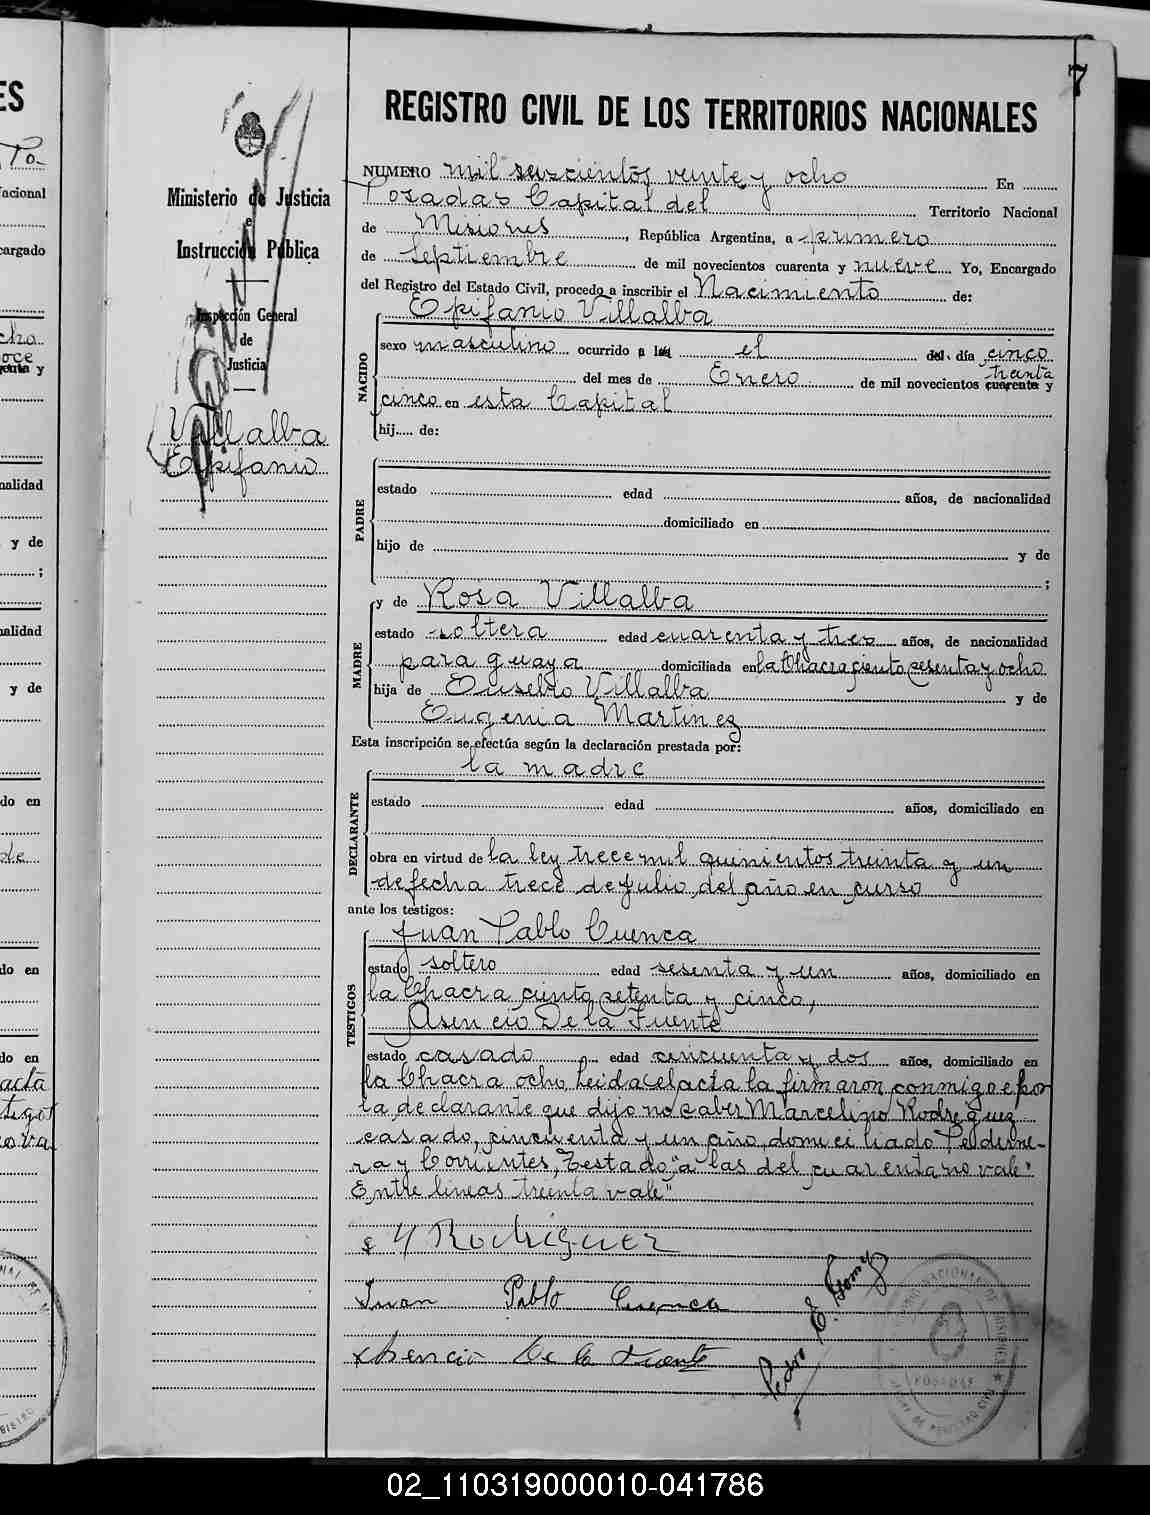 7
REGISTRO CIVIL DE LOS TERRITORIOS NACIONALES
Ministerio de Justicia
e
Instrucción Pública
Inspección General
de
Justicia
Villalba
Epifanio
NUMERO mil seiscientos veinte y ocho En
Posadas Capital del Territorio Nacional
de Misiones, República Argentina, a primero
de Septiembre de mil novecientos cuarenta y nueve Yo, Encargado
del Registro del Estado Civil, procedo a inscribir el Nacimiento de:
Epifanio Villalba
NACIDO
sexo masculino ocurrido a las el del día cinco
treinta
del mes de Enero de mil novecientos cuarenta y
cinco en esta Capital
hij..... de:
PADRE
estado edad años, de nacionalidad
domiciliado en
hijo de y de
;
MADRE
y de Rosa Villalba
estado soltera edad cuarenta y tres años, de nacionalidad
paraguaya domiciliada en la Chacra ciento sesenta y ocho
hija de Eusebio Villalba y de
Eugenia Martinez
Esta inscripción se efectúa según la declaración prestada por:
la madre
DECLARANTE
estado edad años, domiciliado en
obra en virtud de la ley trece mil quinientos treinta y un
de fecha trece de Julio del año en curso
ante los testigos:
TESTIGOS
Juan Pablo Cuenca
estado soltero edad sesenta y un años, domiciliado en
la Chacra ciento setenta y cinco,
Asencio De la Fuente
estado casado edad cincuenta y dos años, domiciliado en
la Chacra ocho Leida el acta la firmaron conmigo e por
la declarante que dijo no saber Marcelino Rodriguez
casado, cincuenta y un año domiciliado Pederne-
ra y Corrientes, Testado "a las del cuarenta no vale"
Entre lineas treinta vale"
Rodriguez
Juan Pablo Cuenca
Asencio De la Fuente
Pedro E. Gomez
POSADAS
02_110319000010-041786